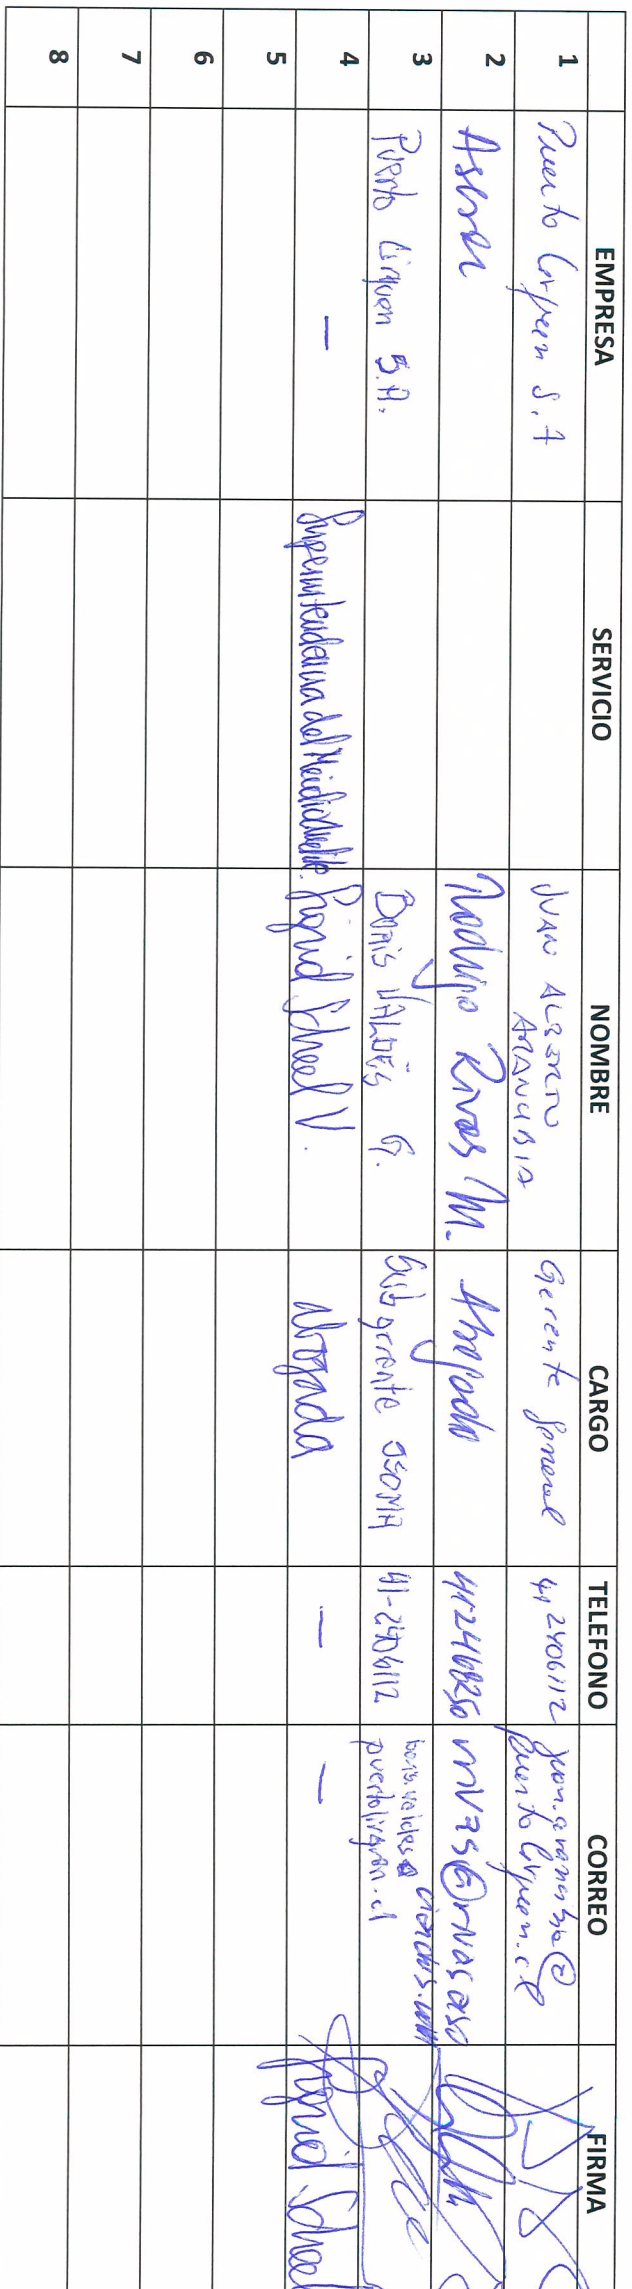 EMPRESA SERVICIO NOMBRE CARGO TELEFONO CORREO FIRMA
1 Puerto Lirquen S.A JUAN ALBERTO ARANCIBIA Gerente General 41 2406112 juan.arancibia@ puertolirquen.cl
2 Asesor Rodrigo Rivas M. Abogado 412468250 rrivas@rivasaso ciados.com
3 Puerto Lirquen S.A. Boris VALDÉS G. Subgerente SSOMA 41-2406112 boris.valdes@ puertolirquen.cl
4 — Superintendencia del Medio Ambiente. Ingrid Scheel V. abogada — — Ingrid Scheel
5
6
7
8